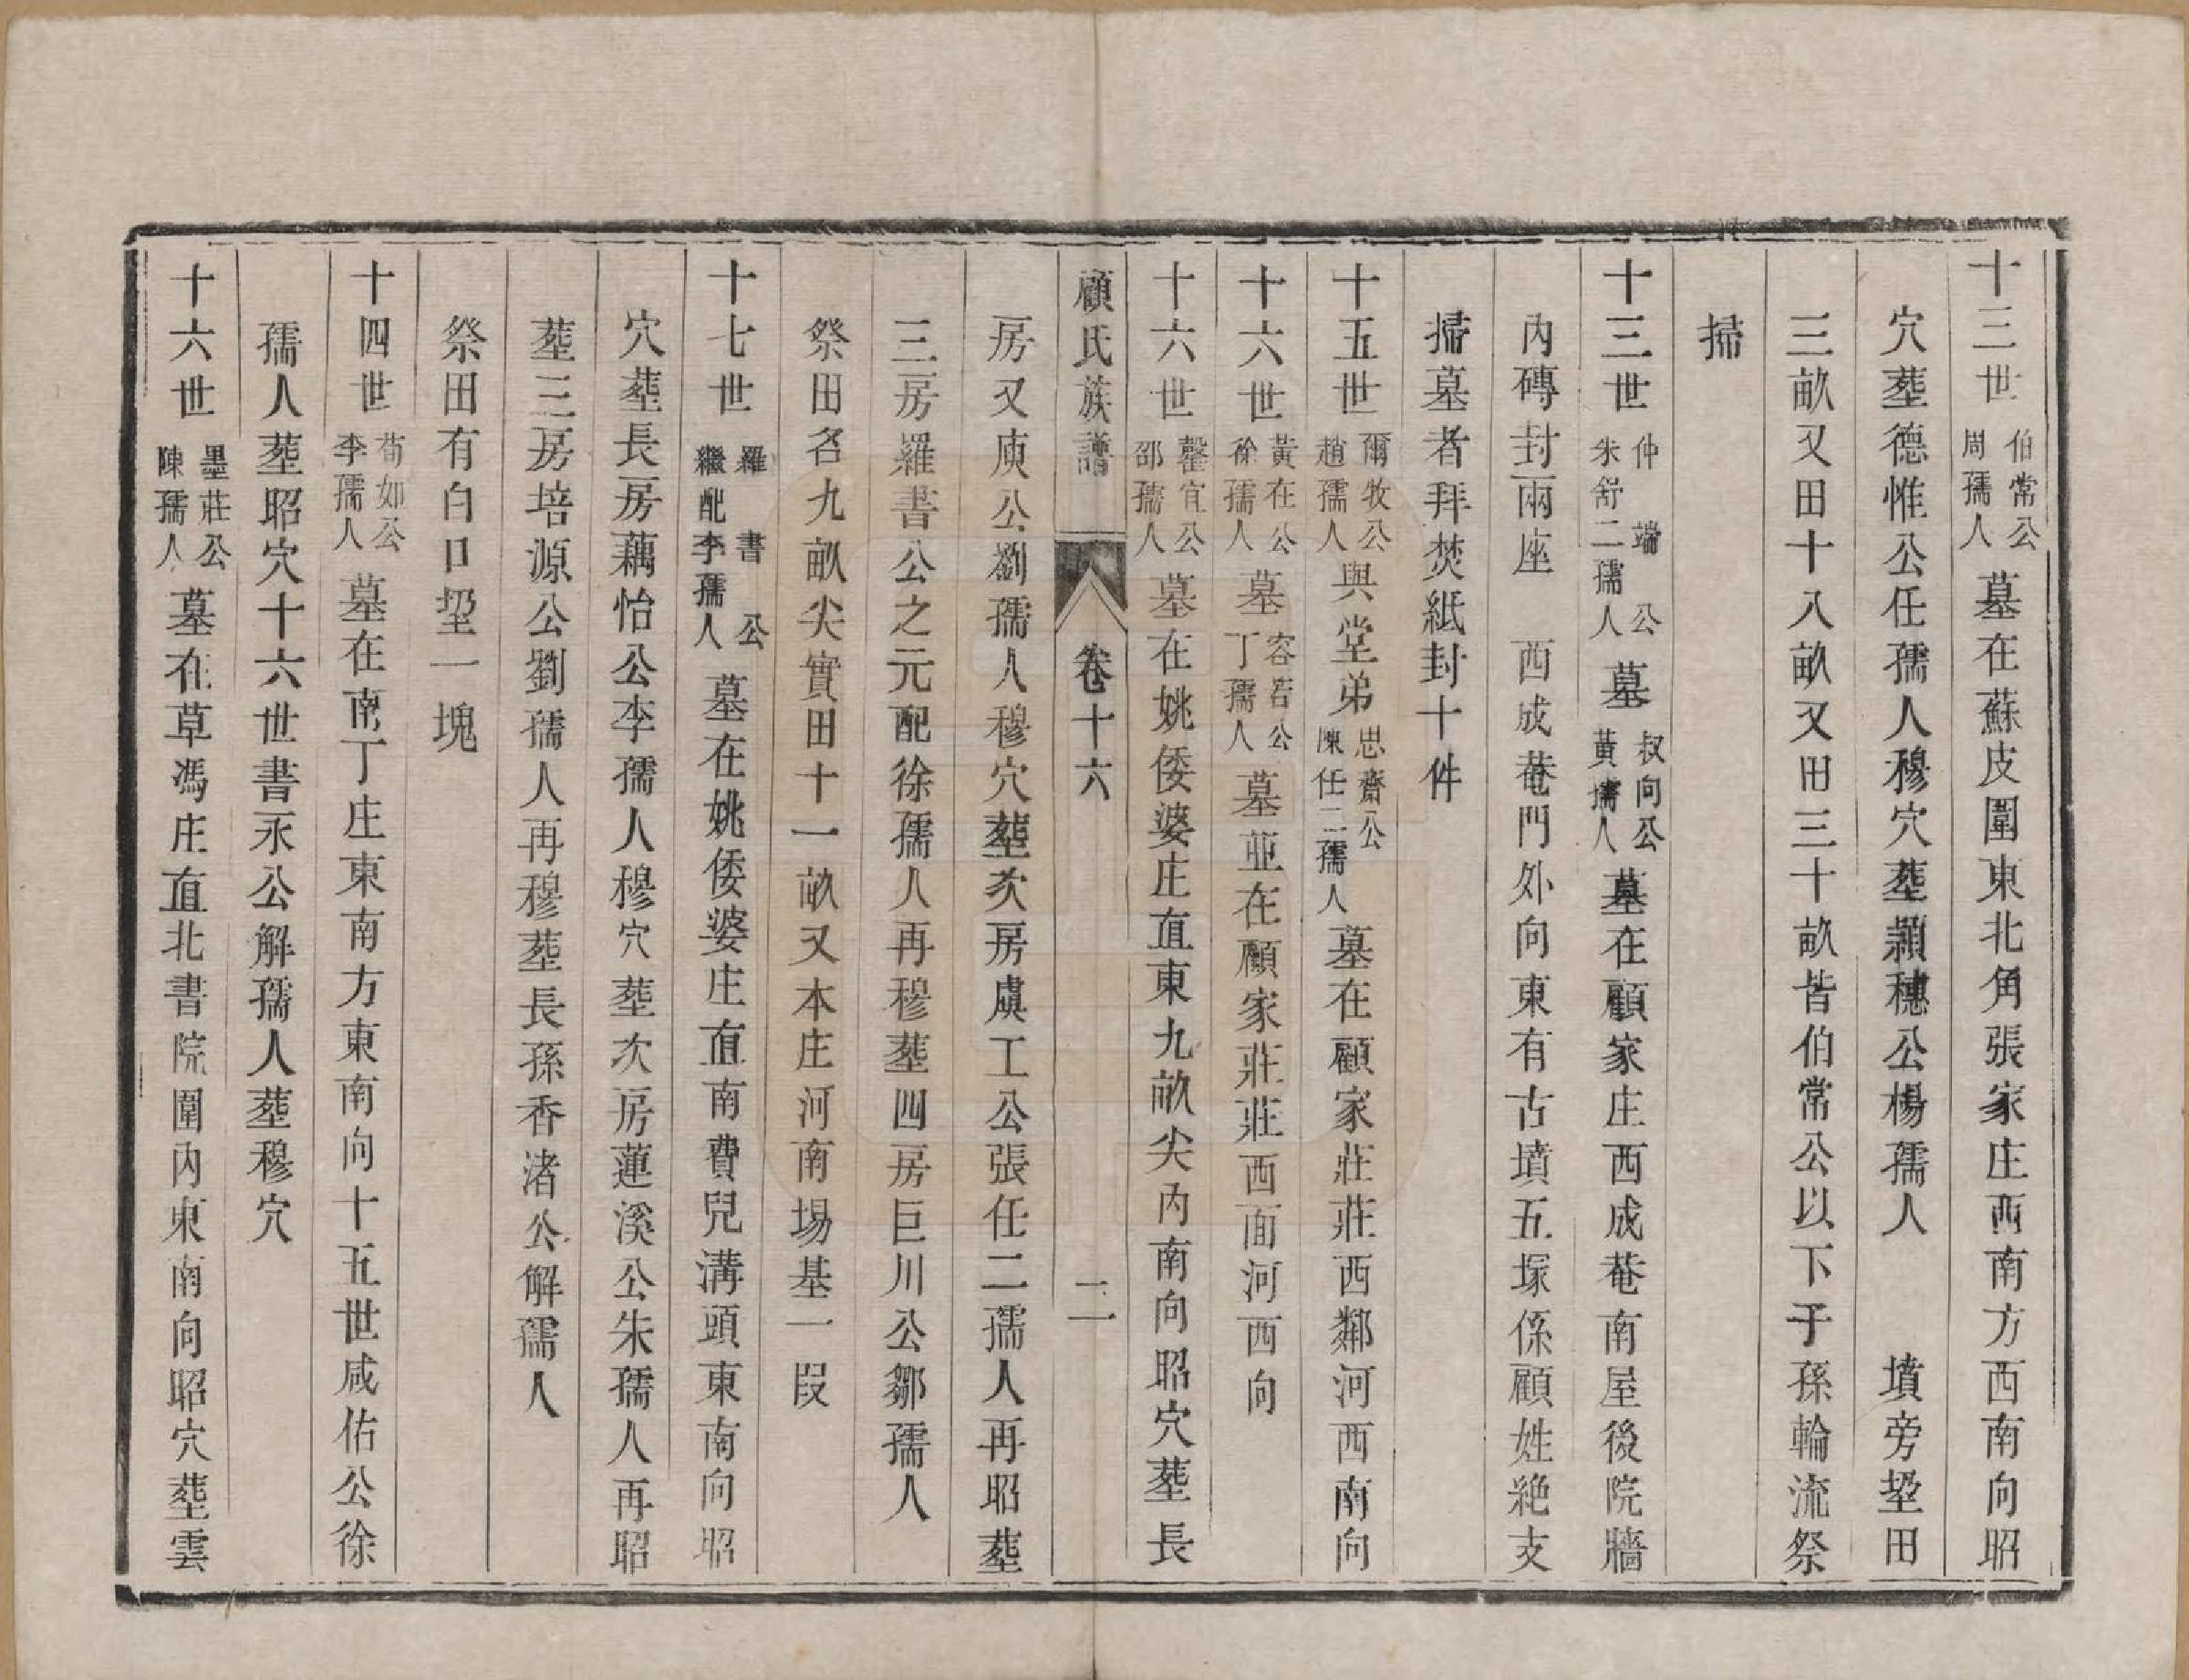 十三世伯常公周孺人墓在蘇皮圍東北角張家庄西南方西南向昭
穴塟德惟公任孺人穆穴塟顯穗公楊孺人　墳旁埊田
三畝又田十八畝又田三十畝皆伯常公以下子孫輪流祭
掃
十三世仲端公朱舒二孺人墓叔向公黃孺人墓在顧家庄西成菴南屋後院牆
內磚封兩座　西成菴門外向東有古墳五塚係顧姓絶支
掃墓者拜焚紙封十件
十五世爾牧公趙孺人與堂弟思齋公陳任二孺人墓在顧家莊莊西鄰河西南向
十六世黃在公徐孺人墓容若公丁孺人墓並在顧家莊莊西面河西向
十六世馨宜公邵孺人墓在姚倭婆庄直東九畝尖內南向昭穴塟長
顧氏族譜　卷十六　二
房又庾公劉孺人穆穴塟次房虞工公張任二孺人再昭塟
三房羅書公之元配徐孺人再穆塟四房巨川公鄒孺人
祭田名九畝尖實田十一畝又本庄河南場基一段
十七世羅書公繼配李孺人墓在姚倭婆庄直南費兒溝頭東南向昭
穴塟長房藕怡公李孺人穆穴塟次房蓮溪公朱孺人再昭
塟三房培源公劉孺人再穆塟長孫香渚公解孺人
祭田有白口埊一塊
十四世荀如公李孺人墓在南丁庄東南方東南向十五世咸佑公徐
孺人塟昭穴十六世書永公解孺人塟穆穴
十六世墨莊公陳孺人墓在草馮庄直北書院圍內東南向昭穴塟雲